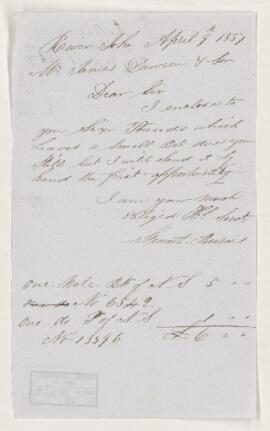 River John April 9th 1857
Mr. James Dawson & Son
Dear Sir
I enclose to
you Six Pounds which
leaves a Small Bal due you
Still but I will send it by
hand the first opportunity
I am your much
obliged Hl Servt
One Note Bk of N S 5 " "
No 6342
One do P of N S 1 " "
No 13396 £6 " "